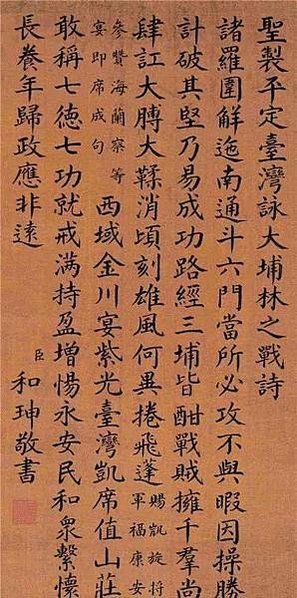 聖製平定臺灣詠大埔林之戰詩
諸羅圍解迤南通斗六門當所必攻不與暇因操勝
計破其堅乃易成功路經三埔皆酣戰賊擁千羣尚
肆訌大膊大鞣消頃刻雄風何異捲飛蓬
賜凱旋將
軍福康安
參贊海蘭察等
宴即席成句
西域金川宴紫光臺灣凱席值山莊
敢稱七德七功就戒滿持盈增惕永安民和衆繫懷
長養年歸政應非遠
臣和珅敬書